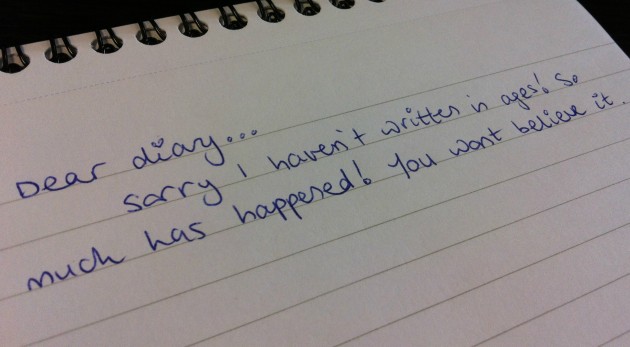 Dear diary...
sorry I haven't written in ages! So
much has happened! You wont believe it.